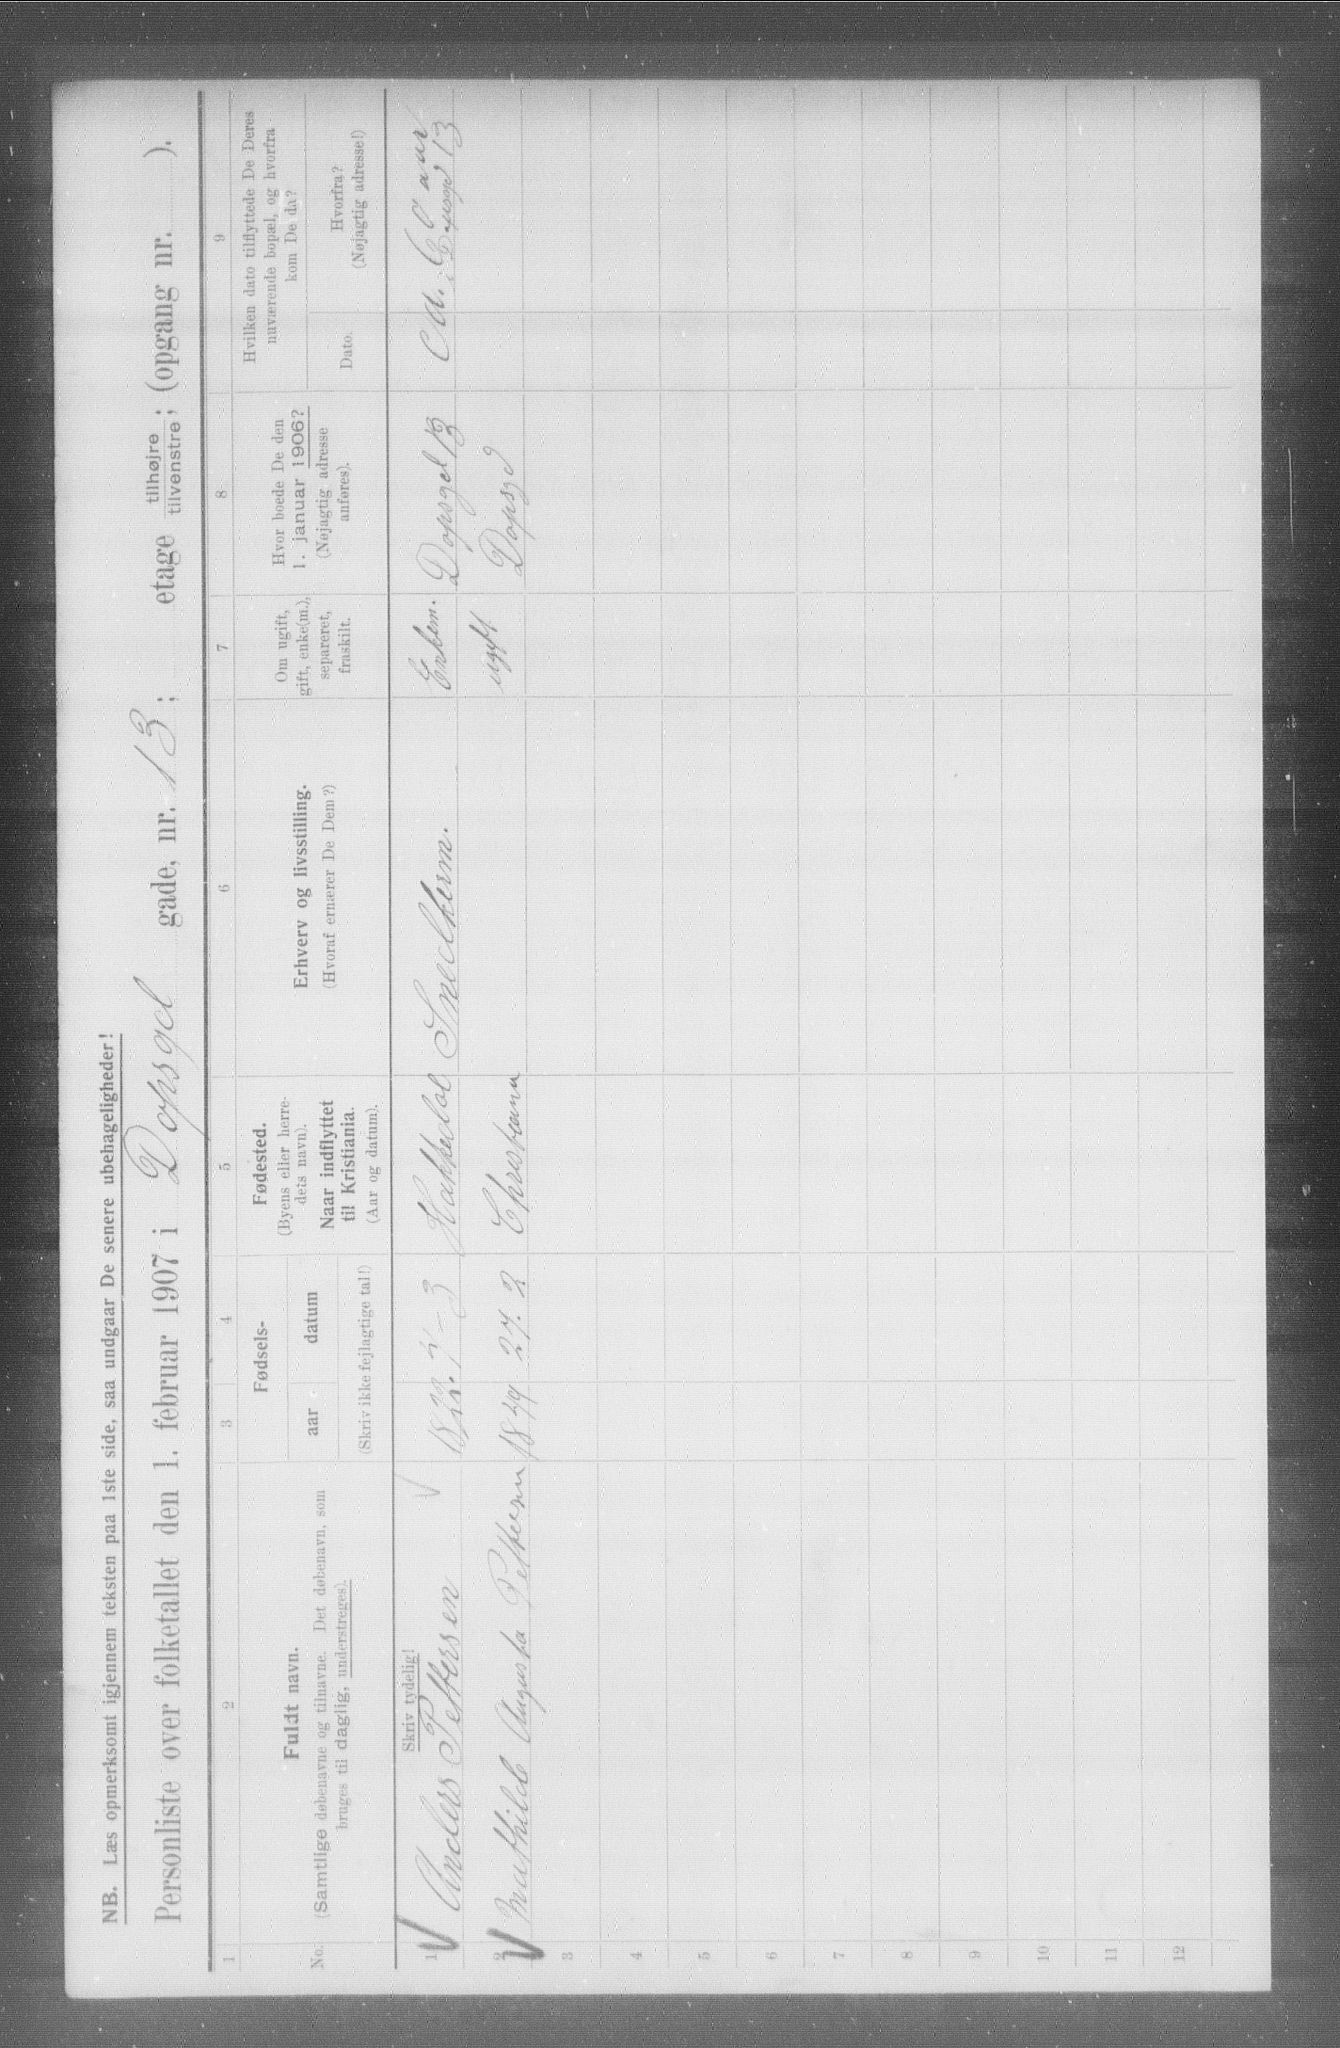 NB. Læs opmerksomt igjennem teksten paa 1ste side, saa undgaar De senere ubehageligheder!
Personliste over folketallet den 1. februar 1907 i Dopsgd gade, nr. 13; etage tilhøjre tilvenstre; (opgang nr. ).
1 2 3 4 5 6 7 8 9
No.
Fuldt navn.
(Samtlige døbenavne og tilnavne. Det døbenavn, som
bruges til daglig, understreges).
Fødsels-
aar datum
(Skriv ikke fejlagtige tal!)
Fødested.
(Byens eller herre-
dets navn).
Naar indflyttet
til Kristiania.
(Aar og datum).
Erhverv og livsstilling.
(Hvoraf ernærer De Dem?)
Om ugift,
gift, enke(m.),
separeret,
fraskilt.
Hvor boede De den
1. januar 1906?
(Nøjagtig adresse
anføres).
Hvilken dato tilflyttede De Deres
nuværende bopæl, og hvorfra
kom De da?
Dato.
Hvorfra?
(Nøjagtig adresse!)
Skriv tydelig!
1 Anders Pettersen 18 - 3 Hakkedal Snedkerm. Enkem. Dopsgd 13
2 Mathilde Augusta Pettersen 1849 27. 2 Christiania ugift Dopsgd 13
3
4
5
6
7
8
9
10
11
12